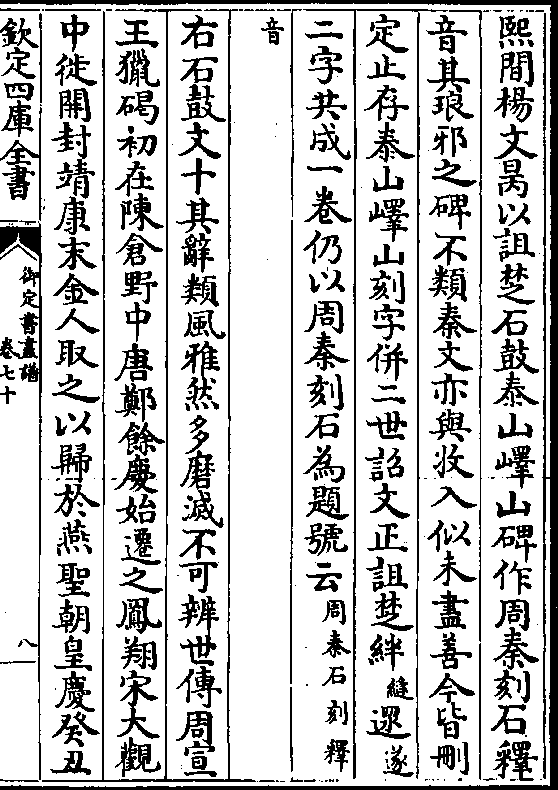 熙間楊文昺以詛楚石鼓泰山嶧山碑作周秦刻石釋
音其琅邪之碑不類秦文亦與收入似未盡善今皆刪
定止存泰山嶧山刻字併二世詔文正詛楚絆縫遝遂
二字共成一卷仍以周秦刻石為題號云周秦石刻釋
音
右石鼓文十其辭類風雅然多磨滅不可辨世傳周宣
王獵碣初在陳倉野中唐鄭餘慶始遷之鳳翔宋大觀
中徙開封靖康末金人取之以歸於燕聖朝皇慶癸丑
欽定四庫全書
御定書畫譜
卷七十
八